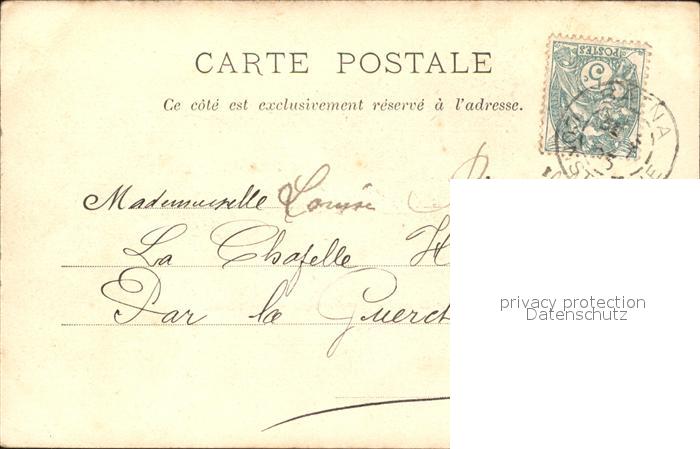 CARTE POSTALE
Ce côté est exclusivement réservé à l'adresse.
POSTES
5c
Mademoiselle Louise
La Chapelle H
Par la Guerch
privacy protection
Datenschutz